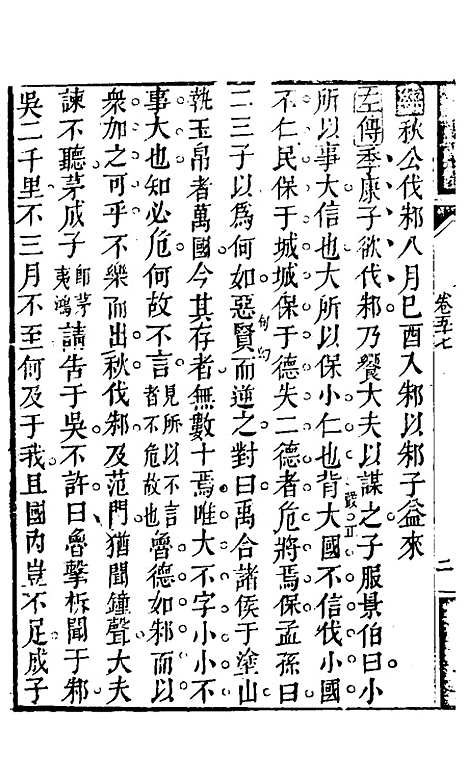 卷五七
二
經秋公伐邾八月己酉入邾以邾子益來
左傳季康子欲伐邾乃饗大夫以謀之子服景伯曰小
所以事大信也大所以保小仁也背大國不信伐小國
嚴正
不仁民保于城城保于德失二德者危將焉保孟孫曰
二三子以為何如惡賢而逆之對曰禹合諸侯于塗山
句幻
執玉帛者萬國今其存者無數十焉唯大不字小小不
事大也知必危何故不言見所以不言者不危故也魯德如邾而以
衆加之可乎不樂而出秋伐邾及范門猶聞鐘聲大夫
諫不聽茅成子即茅夷鴻請告于吳不許曰魯擊柝聞于邾
吳二千里不三月不至何及于我且國內豈不足成子